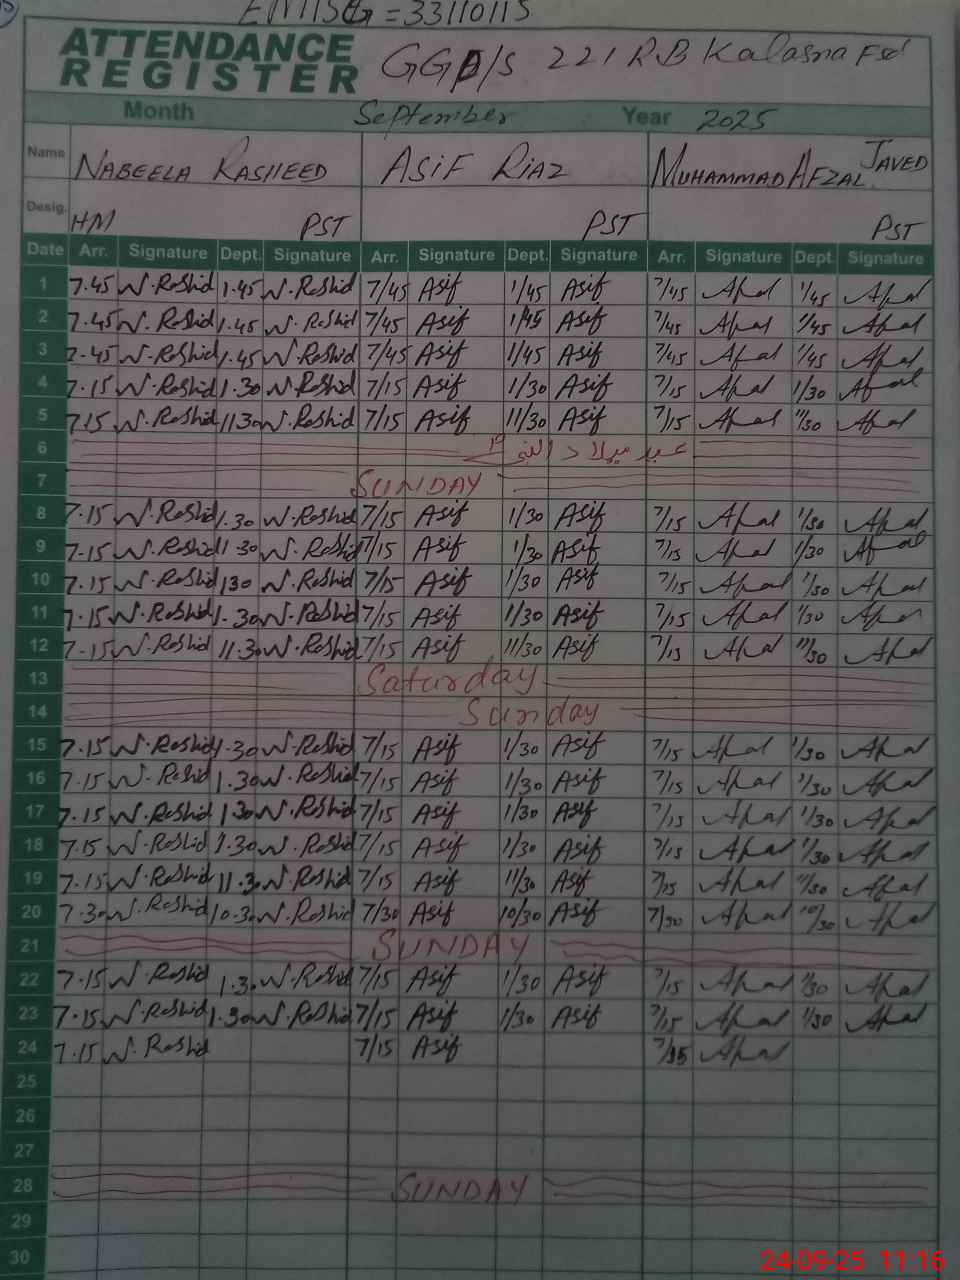 EMIS = 33110115
ATTENDANCE REGISTER
GGP/S 221 RB Kalasna Fsd
Month September Year 2025
Name NABEELA RASHEED ASIF RIAZ MUHAMMAD AFZAL JAVED
Desig. HM PST PST PST
Date Arr. Signature Dept. Signature Arr. Signature Dept. Signature Arr. Signature Dept. Signature
1 7.45 N.Rashid 1.45 N.Rashid 7/45 Asif 1/45 Asif 7/45 Afzal 1/45 Afzal
2 7.45 N.Rashid 1.45 N.Rashid 7/45 Asif 1/45 Asif 7/45 Afzal 1/45 Afzal
3 7.45 N.Rashid 1.45 N.Rashid 7/45 Asif 1/45 Asif 7/45 Afzal 1/45 Afzal
4 7.15 N.Rashid 1.30 N.Rashid 7/15 Asif 1/30 Asif 7/15 Afzal 1/30 Afzal
5 7.15 N.Rashid 11.30 N.Rashid 7/15 Asif 11/30 Asif 7/15 Afzal 11/30 Afzal
6 عید میلاد النبی
7 SUNDAY
8 7.15 N.Rashid 1.30 N.Rashid 7/15 Asif 1/30 Asif 7/15 Afzal 1/30 Afzal
9 7.15 N.Rashid 1.30 N.Rashid 7/15 Asif 1/30 Asif 7/15 Afzal 1/30 Afzal
10 7.15 N.Rashid 130 N.Rashid 7/15 Asif 1/30 Asif 7/15 Afzal 1/30 Afzal
11 7.15 N.Rashid 1.30 N.Rashid 7/15 Asif 1/30 Asif 7/15 Afzal 1/30 Afzal
12 7.15 N.Rashid 11.30 N.Rashid 7/15 Asif 11/30 Asif 7/15 Afzal 11/30 Afzal
13 Saturday
14 Sunday
15 7.15 N.Rashid 1.30 N.Rashid 7/15 Asif 1/30 Asif 7/15 Afzal 1/30 Afzal
16 7.15 N.Rashid 1.30 N.Rashid 7/15 Asif 1/30 Asif 7/15 Afzal 1/30 Afzal
17 7.15 N.Rashid 1.30 N.Rashid 7/15 Asif 1/30 Asif 7/15 Afzal 1/30 Afzal
18 7.15 N.Rashid 1.30 N.Rashid 7/15 Asif 1/30 Asif 7/15 Afzal 1/30 Afzal
19 7.15 N.Rashid 11.30 N.Rashid 7/15 Asif 11/30 Asif 7/15 Afzal 11/30 Afzal
20 7.30 N.Rashid 10.30 N.Rashid 7/30 Asif 10/30 Asif 7/30 Afzal 10/30 Afzal
21 SUNDAY
22 7.15 N.Rashid 1.30 N.Rashid 7/15 Asif 1/30 Asif 7/15 Afzal 1/30 Afzal
23 7.15 N.Rashid 1.30 N.Rashid 7/15 Asif 1/30 Asif 7/15 Afzal 1/30 Afzal
24 7.15 N.Rashid 7/15 Asif 7/15 Afzal
25
26
27
28 SUNDAY
29
30
24-09-25 11:16